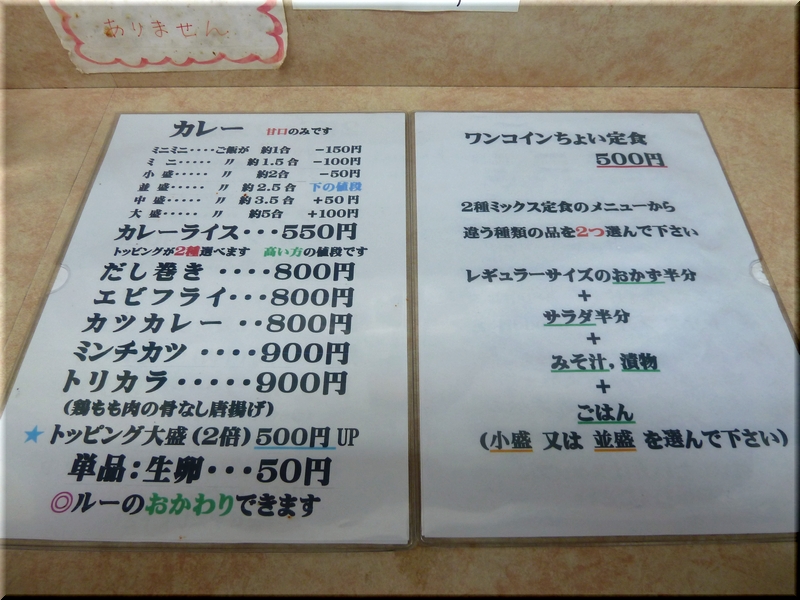 ありません
カレー 甘口のみです
ミニミニ・・・・ご飯が 約1合 −150円
ミ ニ・・・・・ 〃 約1.5合 −100円
小 盛・・・・・ 〃 約2合 −50円
並 盛・・・・・ 〃 約2.5合 下の値段
中 盛・・・・・ 〃 約3.5合 +50円
大 盛・・・・・ 〃 約5合 +100円
カレーライス・・・550円
トッピングが2種選べます 高い方の値段です
だし巻き ・・・・800円
エビフライ・・・800円
カツカレー ・・800円
ミンチカツ ・・・・・900円
トリカラ ・・・・・900円
(鶏もも肉の骨なし唐揚げ)
★トッピング大盛(2倍)500円UP
単品:生卵・・・50円
◎ルーのおかわりできます
ワンコインちょい定食
500円
2種ミックス定食のメニューから
違う種類の品を2つ選んで下さい
レギュラーサイズのおかず半分
+
サラダ半分
+
みそ汁,漬物
+
ごはん
(小盛 又は 並盛 を選んで下さい)